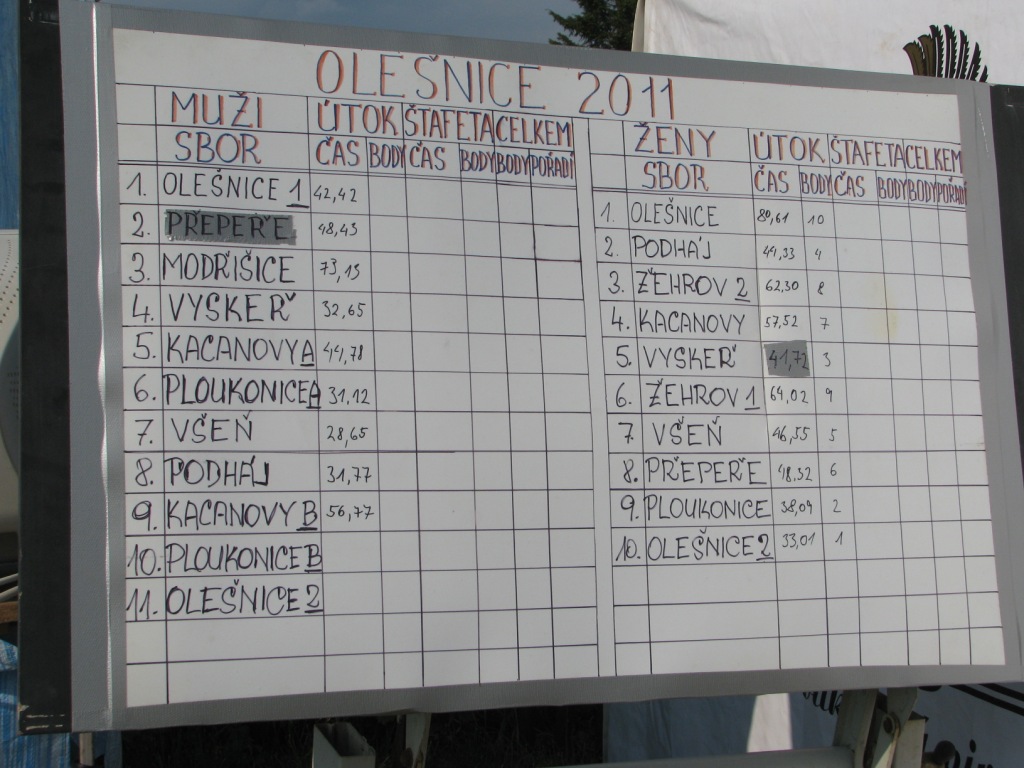 OLEŠNICE 2011
MUŽI ÚTOK ŠTAFETA CELKEM
SBOR ČAS BODY ČAS BODY BODY POŘADÍ
1. OLEŠNICE 1 42,42
2. PŘEPEŘE 48,43
3. MODŘIŠICE 73,15
4. VYSKEŘ 32,65
5. KACANOVY A 44,78
6. PLOUKONICE A 31,12
7. VŠEŇ 28,65
8. PODHÁJ 31,77
9. KACANOVY B 56,77
10. PLOUKONICE B
11. OLEŠNICE 2
ŽENY ÚTOK ŠTAFETA CELKEM
SBOR ČAS BODY ČAS BODY BODY POŘADÍ
1. OLEŠNICE 80,61 10
2. PODHÁJ 44,33 4
3. ŽEHROV 2 62,30 8
4. KACANOVY 57,52 7
5. VYSKEŘ 41,72 3
6. ŽEHROV 1 64,02 9
7. VŠEŇ 46,55 5
8. PŘEPEŘE 48,52 6
9. PLOUKONICE 38,04 2
10. OLEŠNICE 2 33,01 1